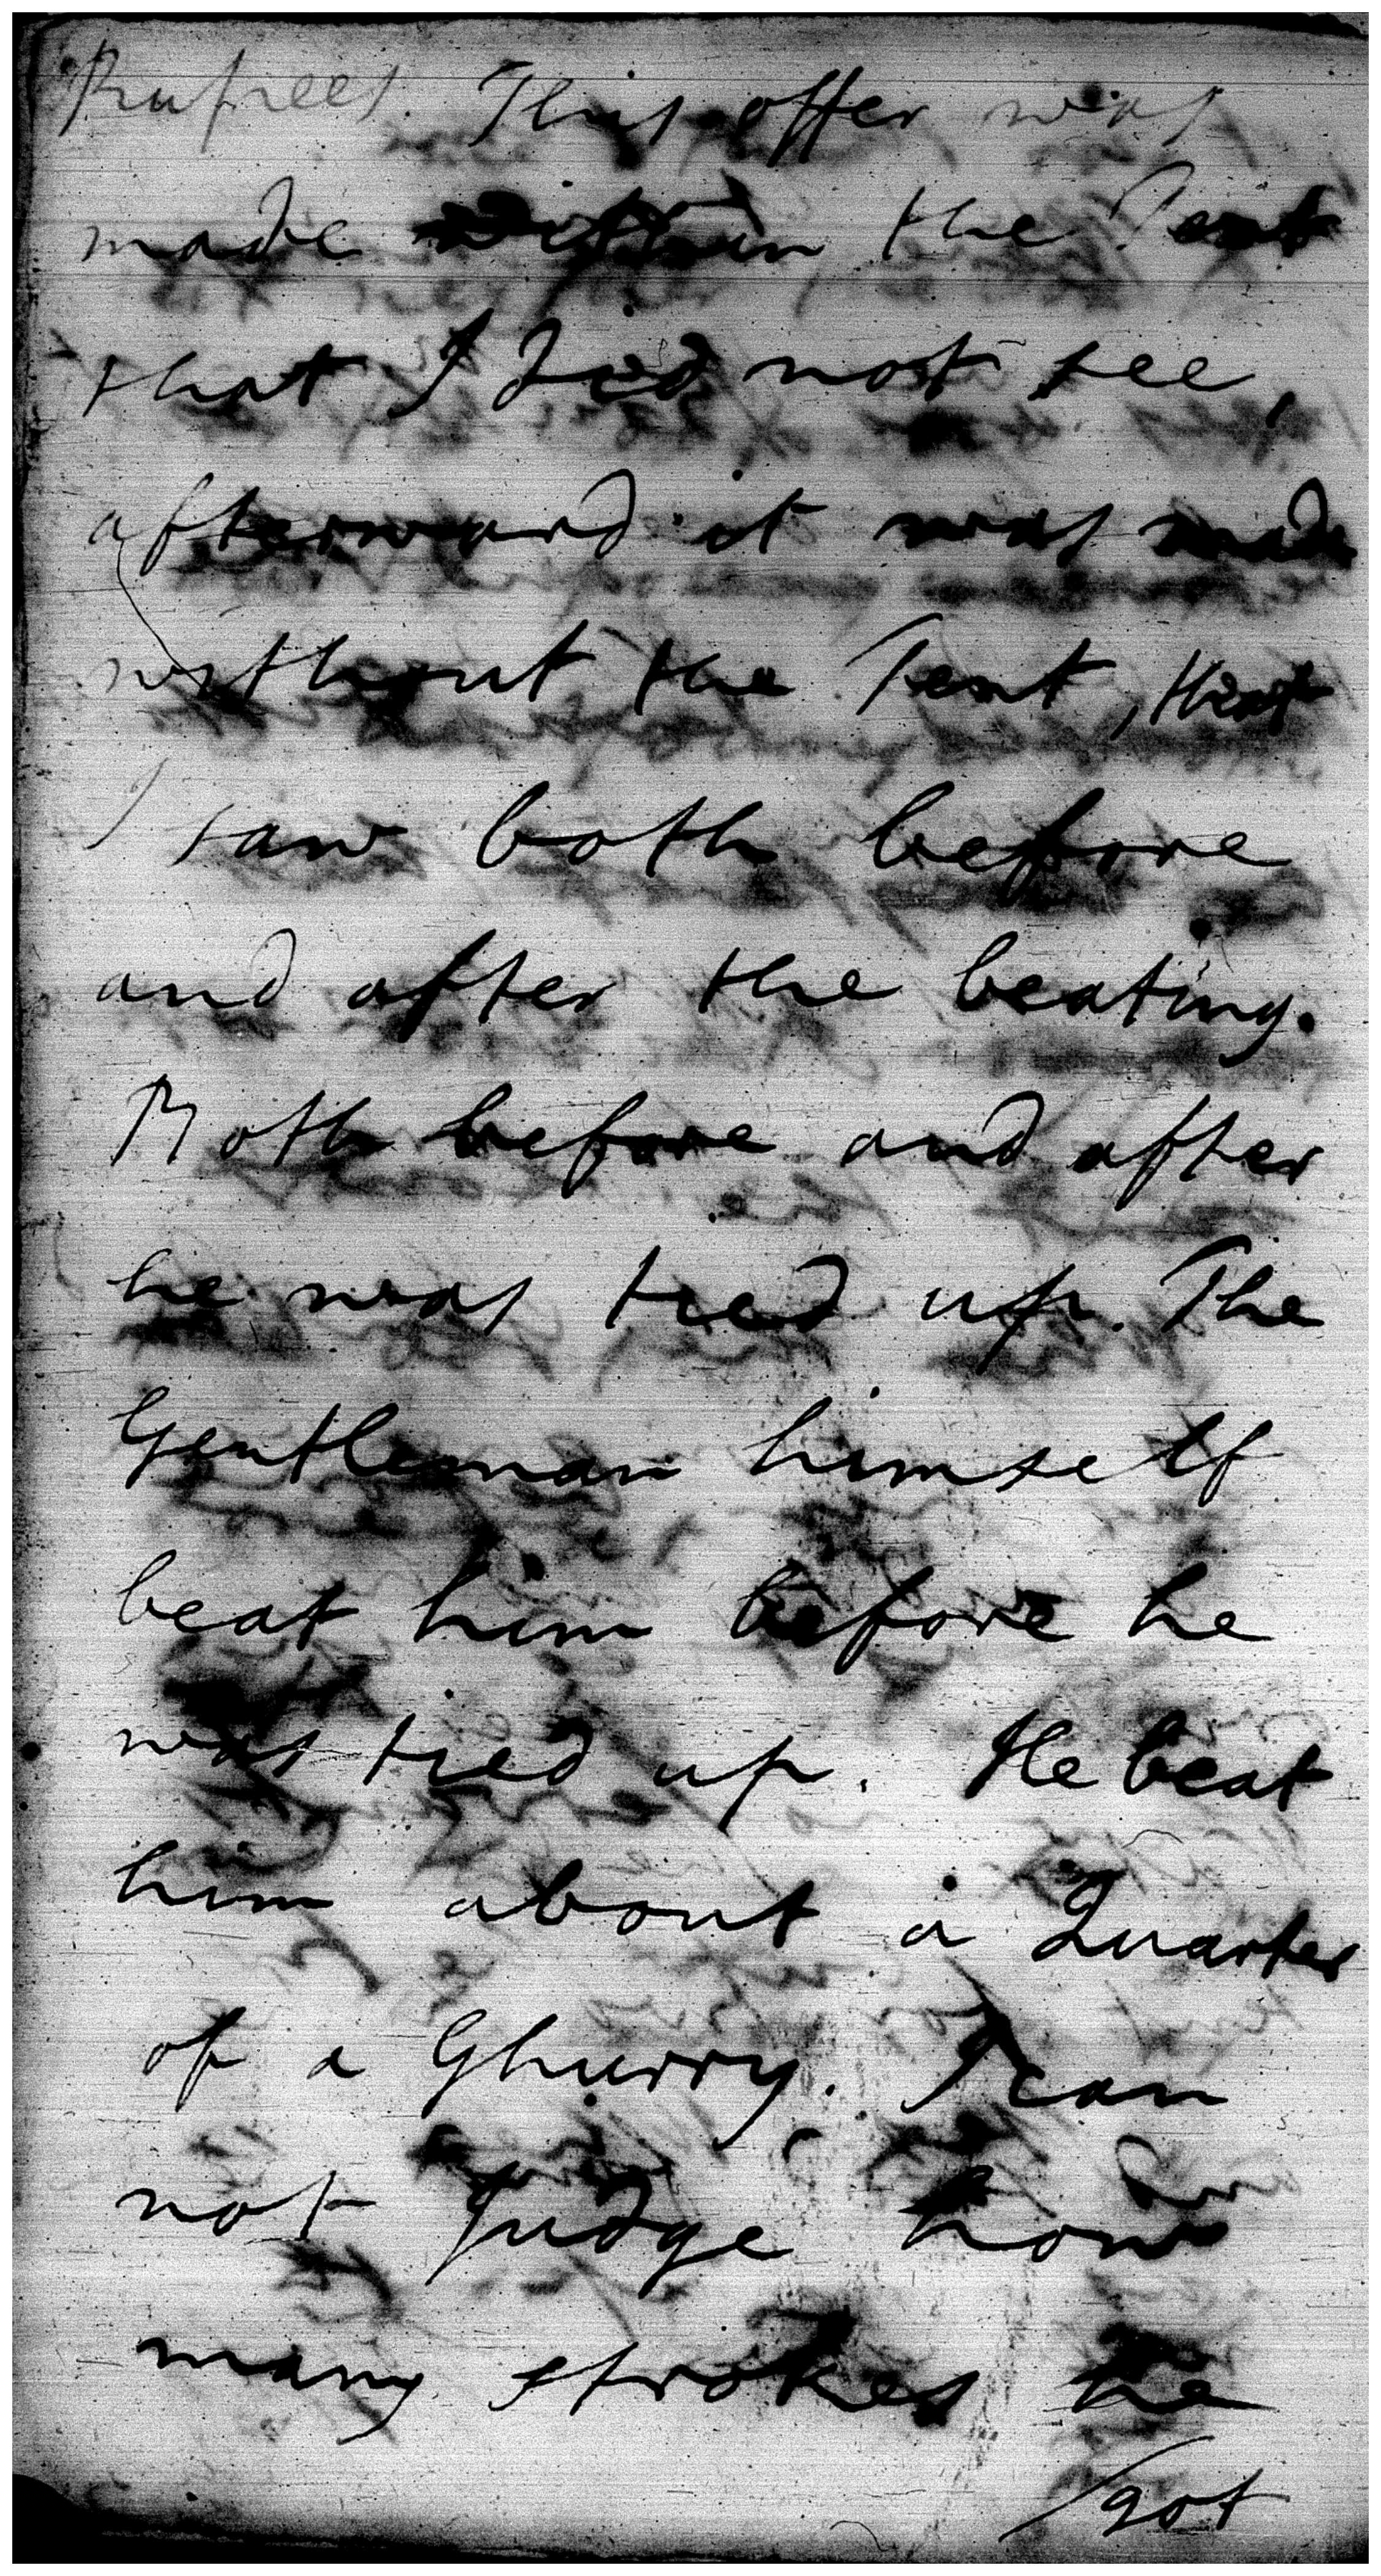 Rupees. This offer was
made within the Tent
that I did not see,
afterward it was made
without the Tent, that
I saw both before
and after the beating.
Both before and after
he was tied up. The
Gentleman himself
beat him before he
was tied up. He beat
him about a Quarter
of a Ghurry. I can
not judge how
many strokes he
/got